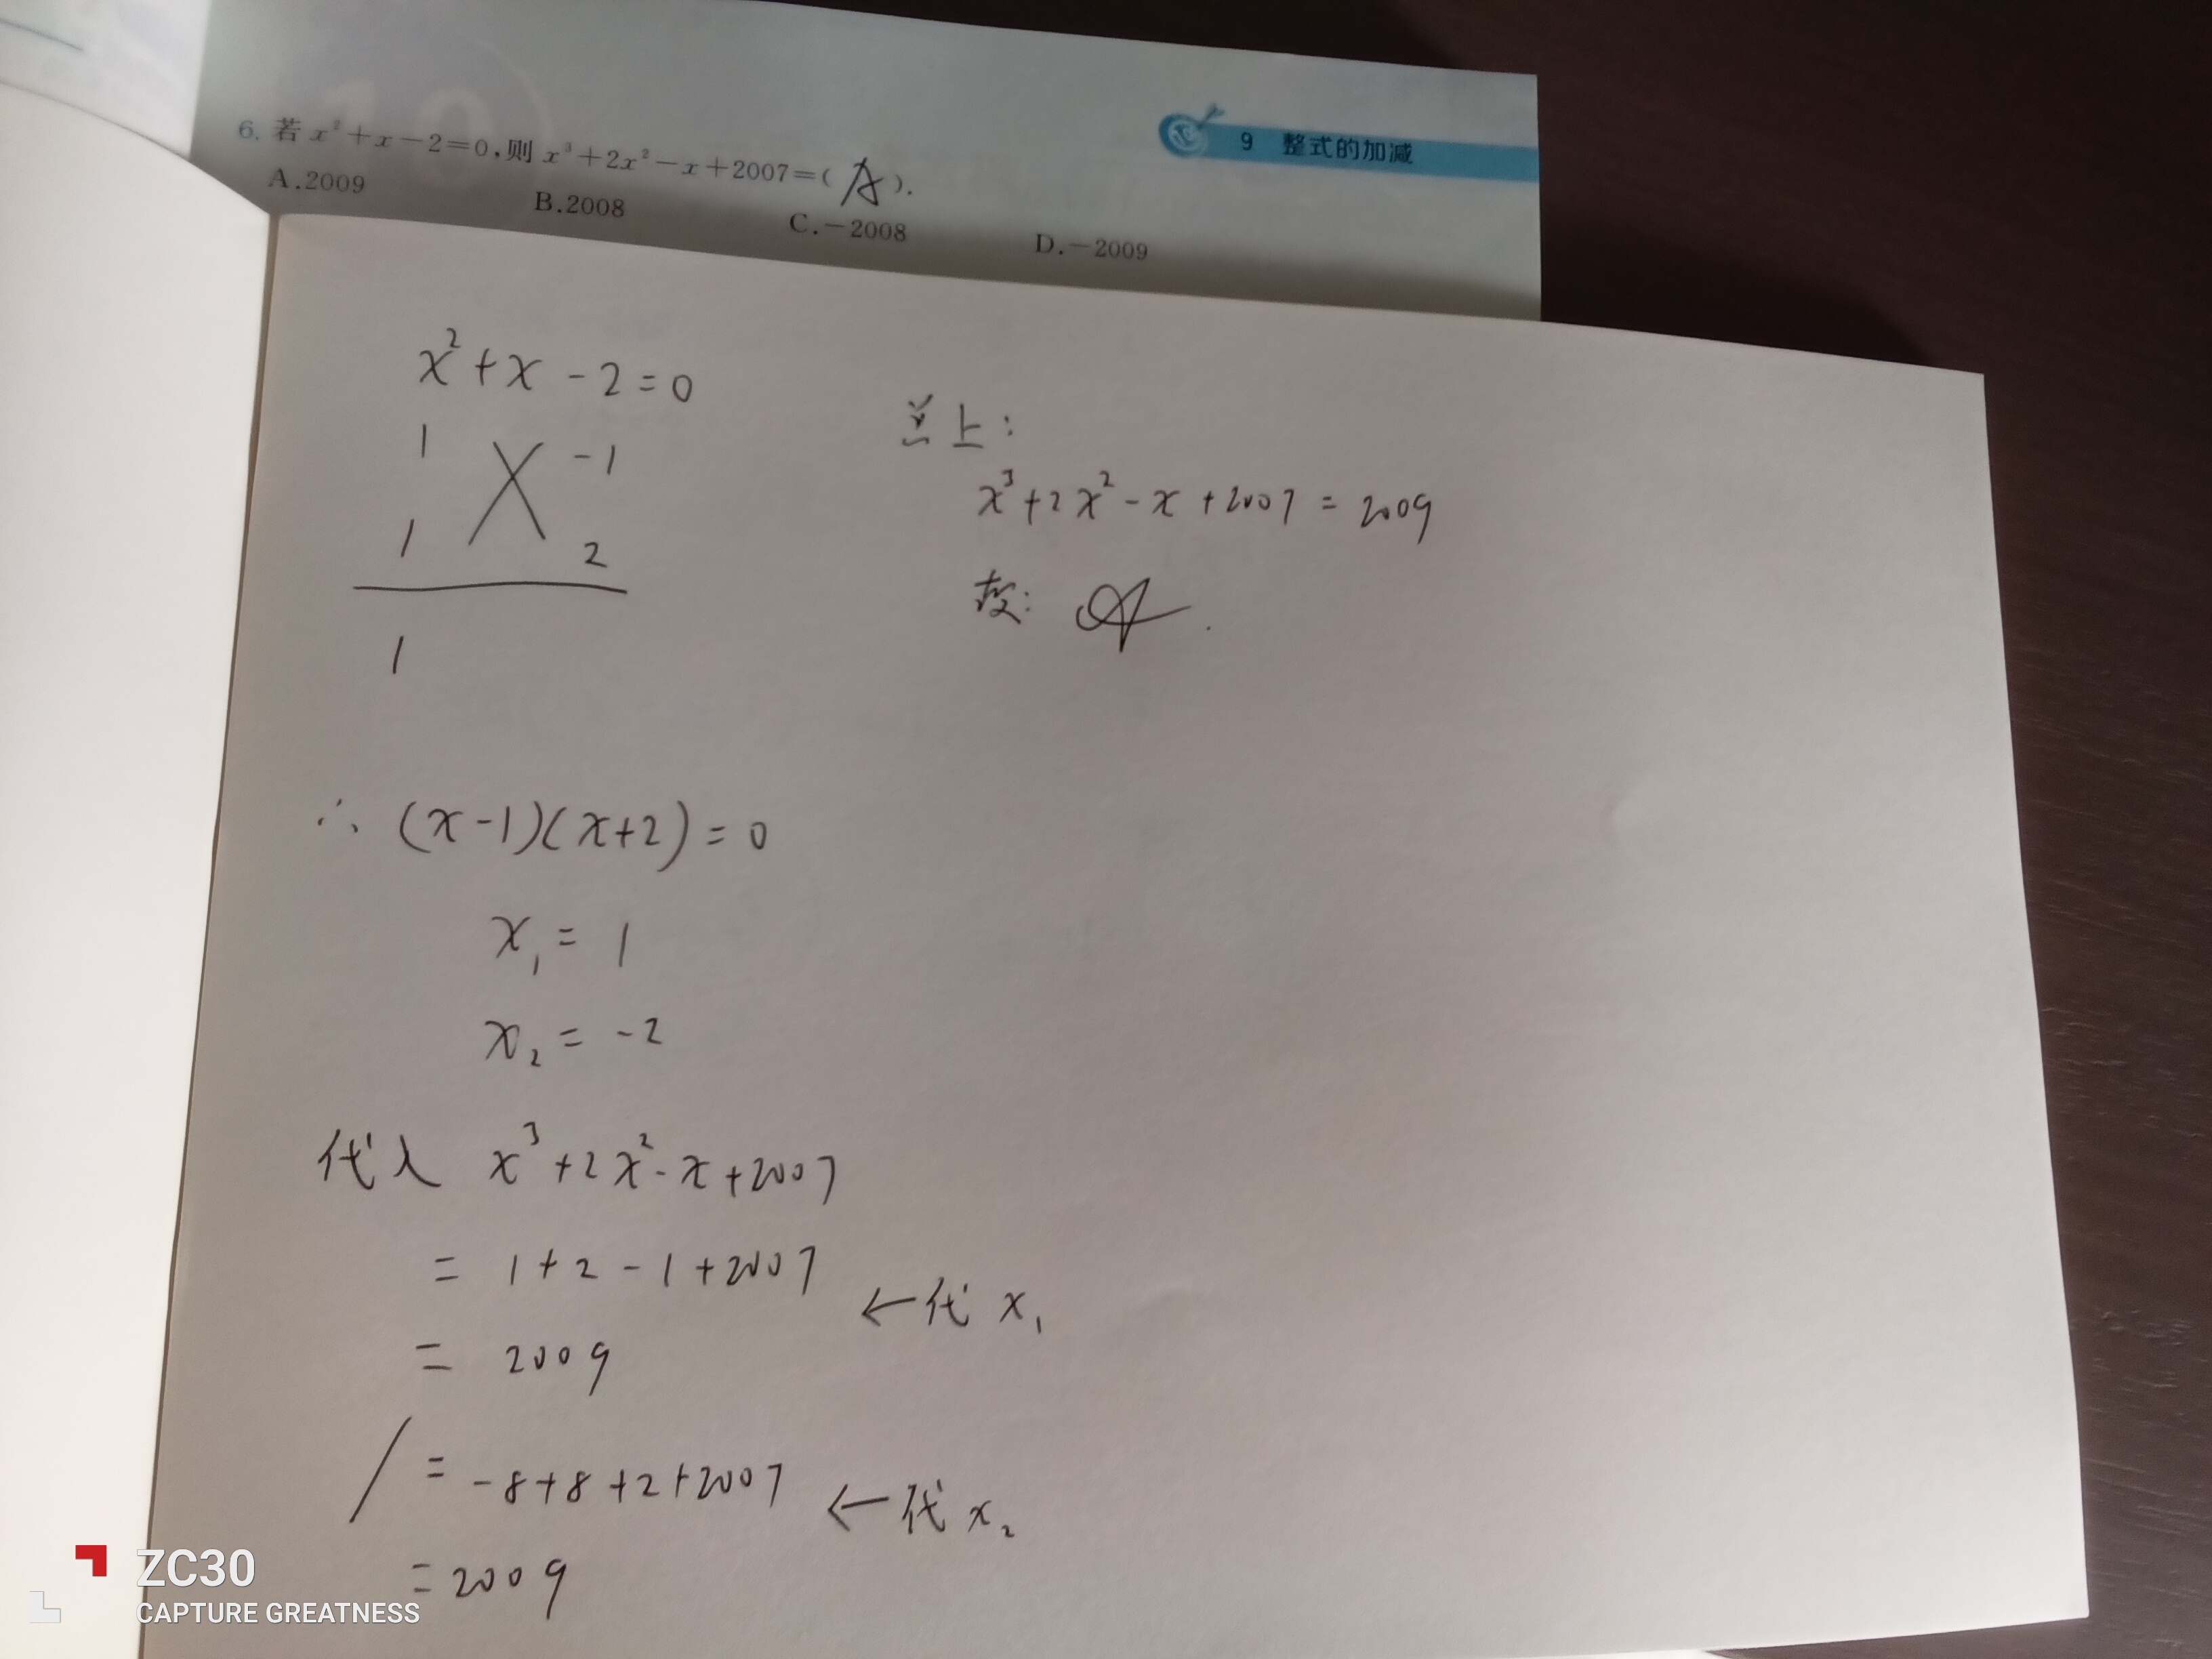 9 整式的加减
6. 若 x²+x-2=0,则 x³+2x²-x+2007=( A ).
A.2009 B.2008 C.-2008 D.-2009
x²+x-2=0
1 -1
1 2
1
∴ (x-1)(x+2)=0
x₁=1
x₂=-2
代入 x³+2x²-x+2007
= 1+2-1+2007 ←代 x₁
= 2009
/ = -8+8+2+2007 ←代 x₂
=2009
上:
x³+2x²-x+2007=2009
故: A.
ZC30
CAPTURE GREATNESS